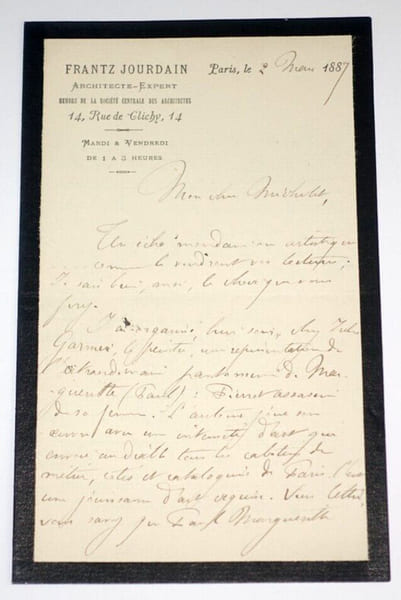 FRANTZ JOURDAIN
ARCHITECTE-EXPERT
MEMBRE DE LA SOCIÉTÉ CENTRALE DES ARCHITECTES
14, Rue de Clichy, 14
MARDI & VENDREDI
DE 1 A 3 HEURES
Paris, le 2 Mars 1887
Mon cher
Un écho mondain ou artistique
comme le voudront vos lecteurs ;
Je sais bien, moi, le choix que vous
ferez.
J'ai organisé hier soir, chez Jules
Garnier, le peintre, une représentation de
l'extraordinaire pantomime de Mar-
gueritte (Paul) : Pierrot assassin
de sa femme. L'auteur joue son
œuvre avec une intensité d'art que
tous les cabotins de
métier, cotés et catalogués de Paris. C'est
une jouissance d'art exquise. Vous
vous savez que Paul Margueritte